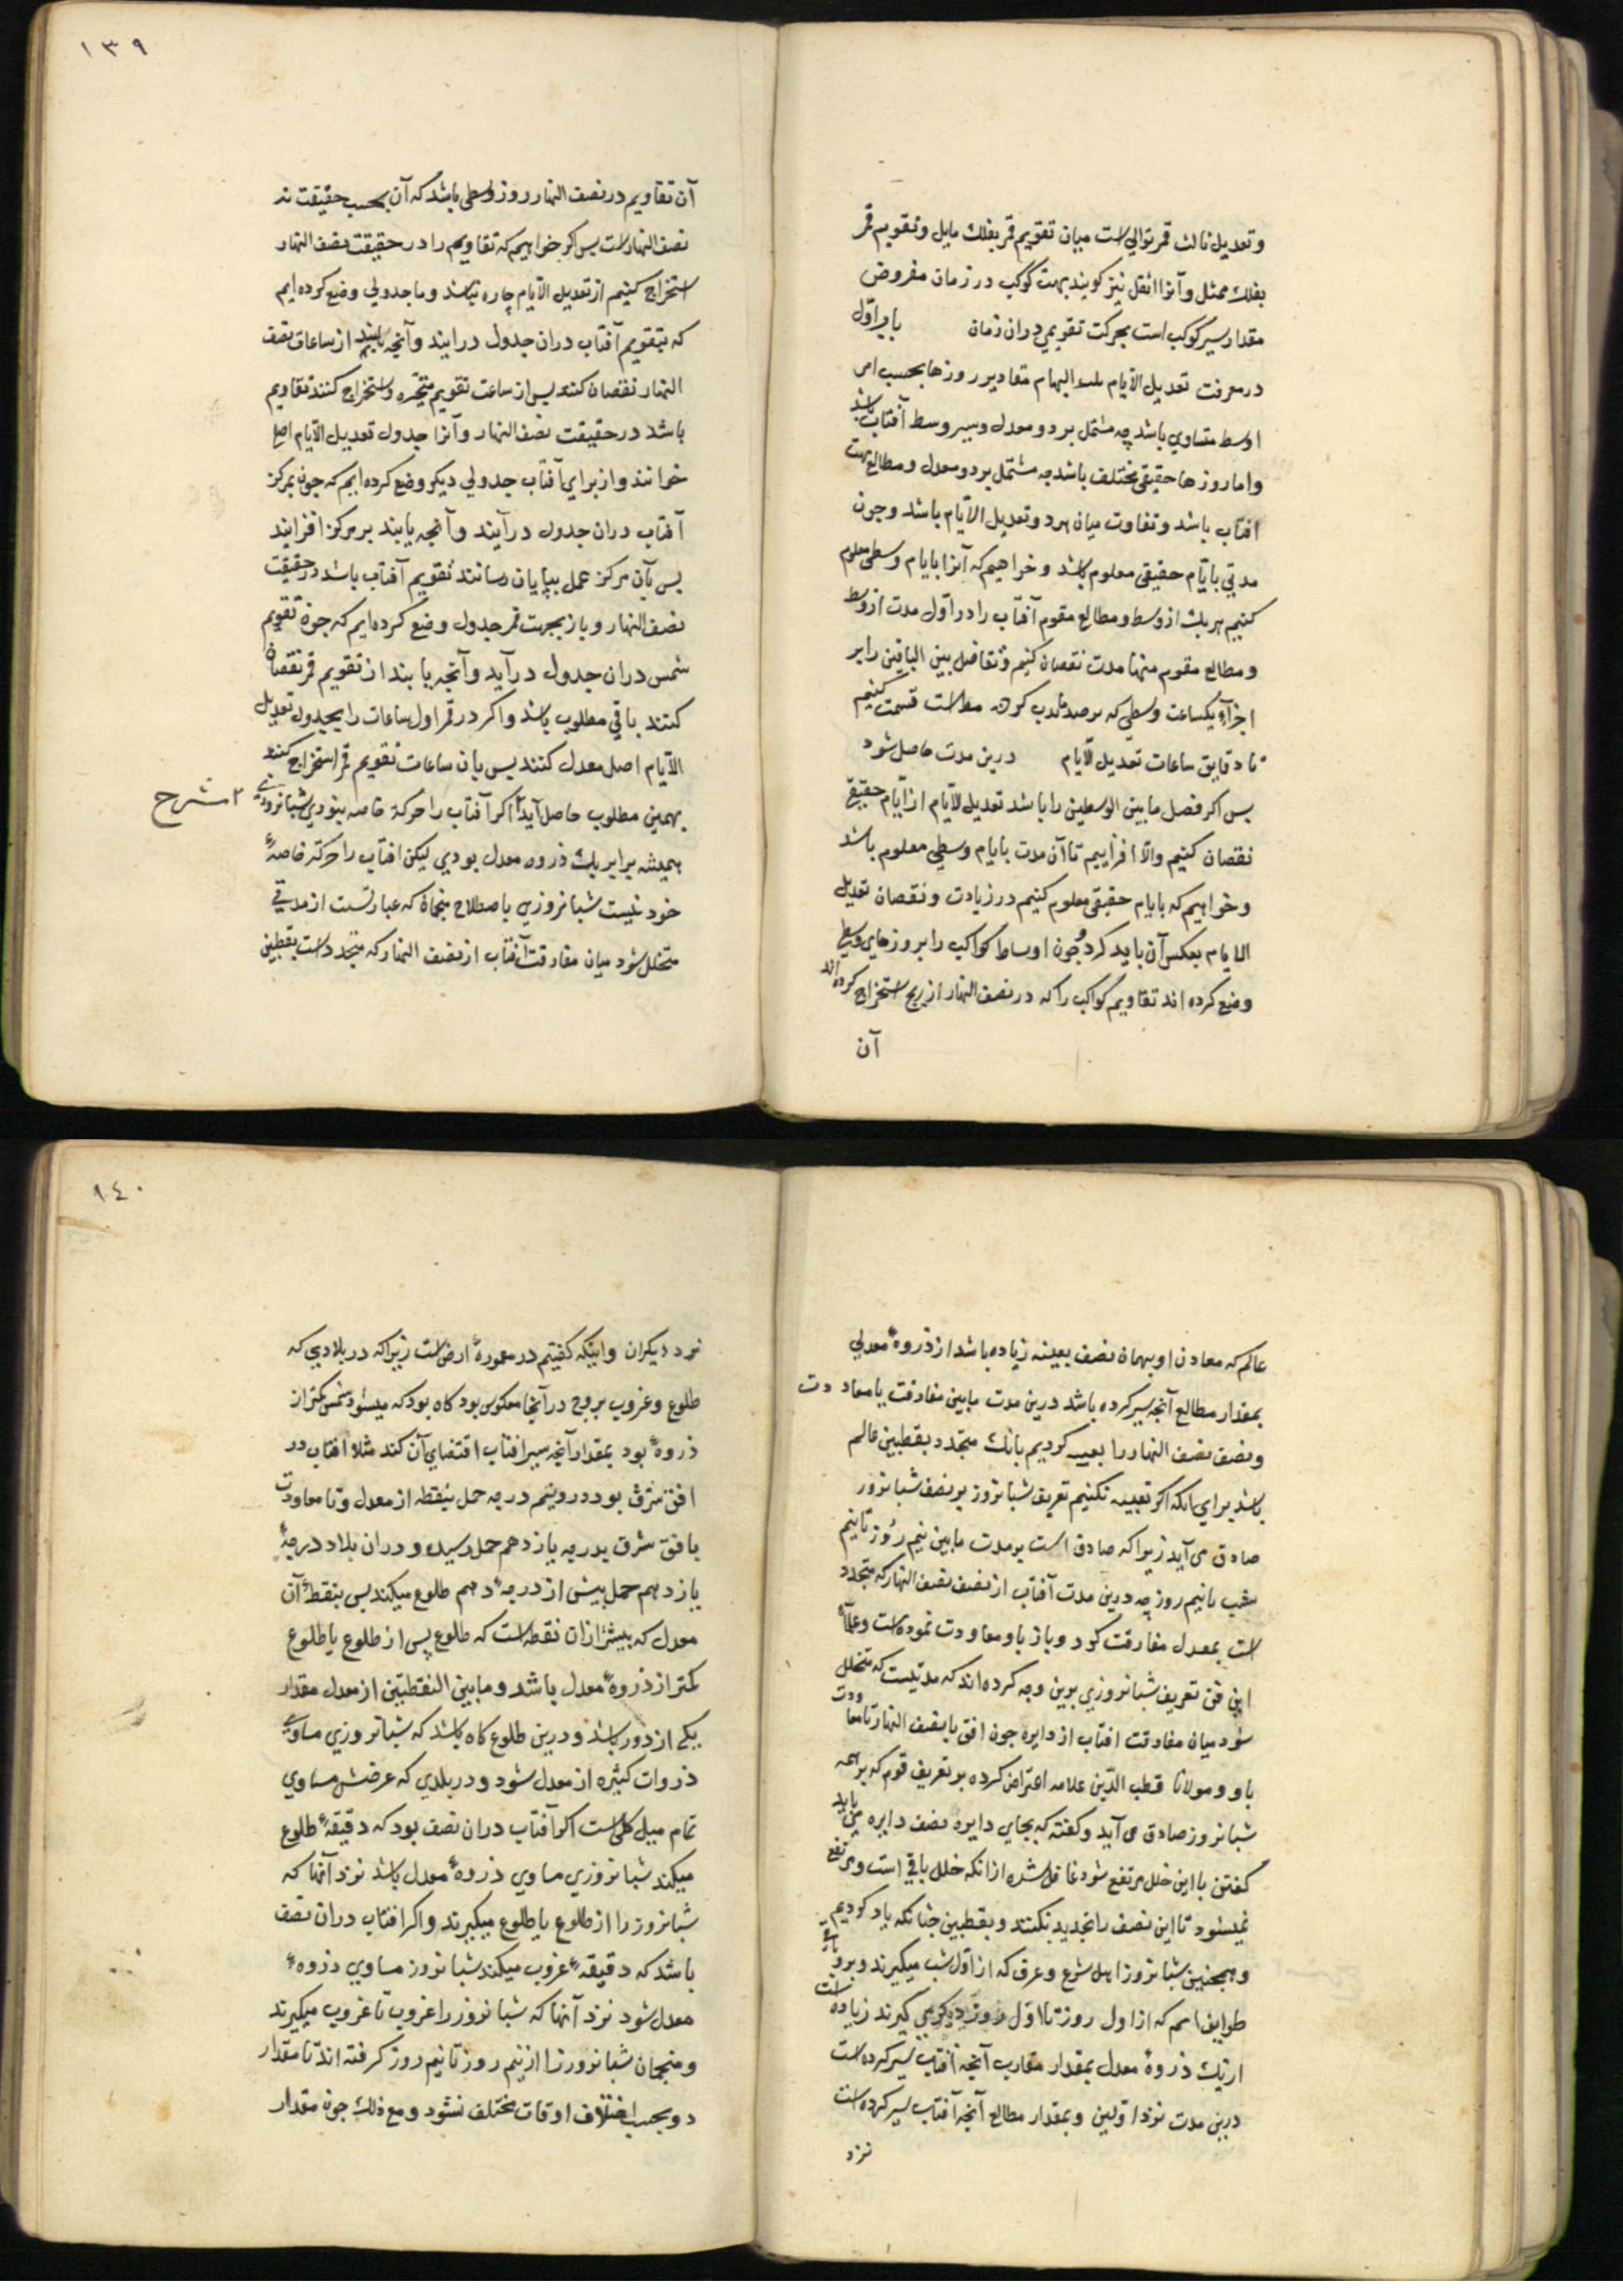 وتعدیل ثالث قمر توالی است میان تقویم قمر بفلك مایل وتقویم قمر
بفلك ممثل وآنرا انقل نیز کویند بهت کوکب در زمان مفروض
مقدار سیر کوکب است بحرکت تقویمی دران زمان باب اول
در معرفت تعدیل الایام بلیالیها مقادیر روزها بحسب امر
اوسط متساوی باشد چه مشتمل بر دور معدل وسیر وسط آفتاب باشد
واما روزها حقیقی مختلف باشد چه مشتمل بر دور معدل ومطالع بهت
افتاب باشد وتفاوت میان هردو تعدیل الایام باشد وچون
مدتی بایام حقیقی معلوم باشد وخواهیم که آنرا بایام وسطی معلوم
کنیم هریك از وسط ومطالع مقوم آفتاب را در اول مدت از وسط
ومطالع مقوم منتها مدت نقصان کنیم وتفاضل بین الباقین را بر
اجزاء یکساعت وسطی که قسمت کنیم
تا دقایق ساعات تعدیل الایام درین مدت حاصل شود
پس اکر فضل مابین الوسطین را باشد تعدیل الایام از ایام حقیقی
نقصان کنیم والا افزاییم تا آن مدت بایام وسطی معلوم باشد
وخواهیم که بایام حقیقی معلوم کنیم در زیادت ونقصان تعدیل
الایام بعکس آن باید کرد وچون اوساط کواکب را بروزهای وسطی
وضع کرده اند تقاویم کواکب را که در نصف النهار از زیج استخراج کرده اند
آن
١٣٩
آن تقاویم در نصف النهار روز وسطی باشد که آن بحسب حقیقت نه
نصف النهار است پس اکر خواهیم که تقاویم را در حقیقت نصف النهار
استخراج کنیم از تعدیل الایام چاره نباشد وما جدولی وضع کرده ایم
که بتقویم آفتاب دران جدول درایند وآنچه یابند از ساعات نصف
النهار نقصان کنند پس از ساعت تقویم متحیره استخراج کنند تقاویم
باشد در حقیقت نصف النهار وآنرا جدول تعدیل الایام اصل
خوانند واز برای آفتاب جدولی دیکر وضع کرده ایم که چون بمرکز
آفتاب دران جدول درآیند وآنچه یابند بر مرکز افزایند
پس بآن مرکز عمل بپایان رسانند تقویم آفتاب باشد در حقیقت
نصف النهار وباز بجهت قمر جدول وضع کرده ایم که چون تقویم
شمس دران جدول درآید وآنچه یابند از تقویم قمر نقصان
کنند باقی مطلوب باشد واکر در قمر اول ساعات را بجدول تعدیل
الایام اصل معدل کنند پس بان ساعات تقویم قمر استخراج کنند
بهمین مطلوب حاصل آید اکر آفتاب را حرکة خاصه نبودی شبانروزی
٢ شرح
همیشه برابر یك ذروه معدل بودی لیکن افتاب را حرکة خاصهٔ
خود نیست شبانروزی باصطلاح منجمان که عبارتست از مدتی
متخلل شود میان مفارقت آفتاب از نصف النهار که متحدد است بقطبین
عالم که معادن او بهمان نصف بعینه زیاده باشد از ذروهٔ معدلی
بمقدار مطالع آنچه سیر کرده باشد درین مدت مابین مفارقت یا معاودت
ونصف نصف النهار را کردیم بانك متحدد بقطبین عالم
باشد برای انکه اکر نکنیم تعریف شبانروز بر نصف شبانروز
صادق می آید زیرا که صادق است بر مدت مابین نیم روز تا نیم
شب یا نیم روز چه درین مدت آفتاب از نصف نصف النهار که متحدد
است بمعدل مفارقت کرد وباز باو معاودت نموده است وعلماء
این فن تعریف شبانروزی برین وجه کرده اند که مدتیست که متخلل
شود میان مفارقت افتاب از دایره چون افق یا نصف النهار تا معاودت
باو ومولانا قطب الدین علامه اعتراض کرده بر تعریف قوم که بر همه
شبانروز صادق می آید وکفته که بجای دایره نصف دایره می باید
کفتن با این خلل مرتفع شود غافل شده از انکه خلل باقی است ومرتفع
نمیشود تا این نصف را تحدید نکنند وبقطبین چنانکه یاد کردیم
وهمچنین شبانروز اهل شرع وعرف که از اول شب میکیرند وبروز
طوایف امم که از اول روز تا اول روز دیکر می کیرند زیاده است
از یك ذروهٔ معدل بمقدار مغارب آنچه آفتاب سیر کرده است
درین مدت نزد اولین وبمقدار مطالع آنچه آفتاب سیر کرده است
نزد
١٤٠
نزد دیکران واینکه کفتیم در معمورهٔ ارض است زیرا که در بلادی که
طلوع وغروب بروج در آنجا معکوس بود کاه بود که میشود شمس کمتر از
ذروهٔ بود بمقدار آنچه سیر افتاب اقتضای آن کند مثلا افتاب در
افق شرق بود در ویتم درجه حمل بنقطه از معدل وتا معاودت
بافق شرق بدرجه یازدهم حمل رسیده ودران بلاد درجهٔ
یازدهم حمل پیش از درجهٔ دهم طلوع میکند پس بنقطهٔ آن
معدل که پیشتر ازان نقطه است که طلوع پس از طلوع یا طلوع
کمتر از ذروهٔ معدل باشد ومابین النقطتین از معدل مقدار
یکی از دور باشد ودرین طلوع کاه باشد که شبانروزی مساوی
ذروات کثیره از معدل شود ودر بلدی که عرضش مساوی
تمام میل کلی است اکر آفتاب دران نصف بود که دقیقهٔ طلوع
میکند شبانروزی مساوی ذروهٔ معدل باشد نزد آنها که
شبانروز را از طلوع یا طلوع میکیرند واکر افتاب دران نصف
باشد که دقیقهٔ غروب میکند شبانروز مساوی ذروهٔ
معدل شود نزد آنها که شبانروز را غروب تا غروب میکیرند
ومنجمان شبانروز را از نیم روز تا نیم روز کرفته اند تا مقدار
دو بحسب اختلاف اوقات مختلف نشود ومع ذلك چون مقدار